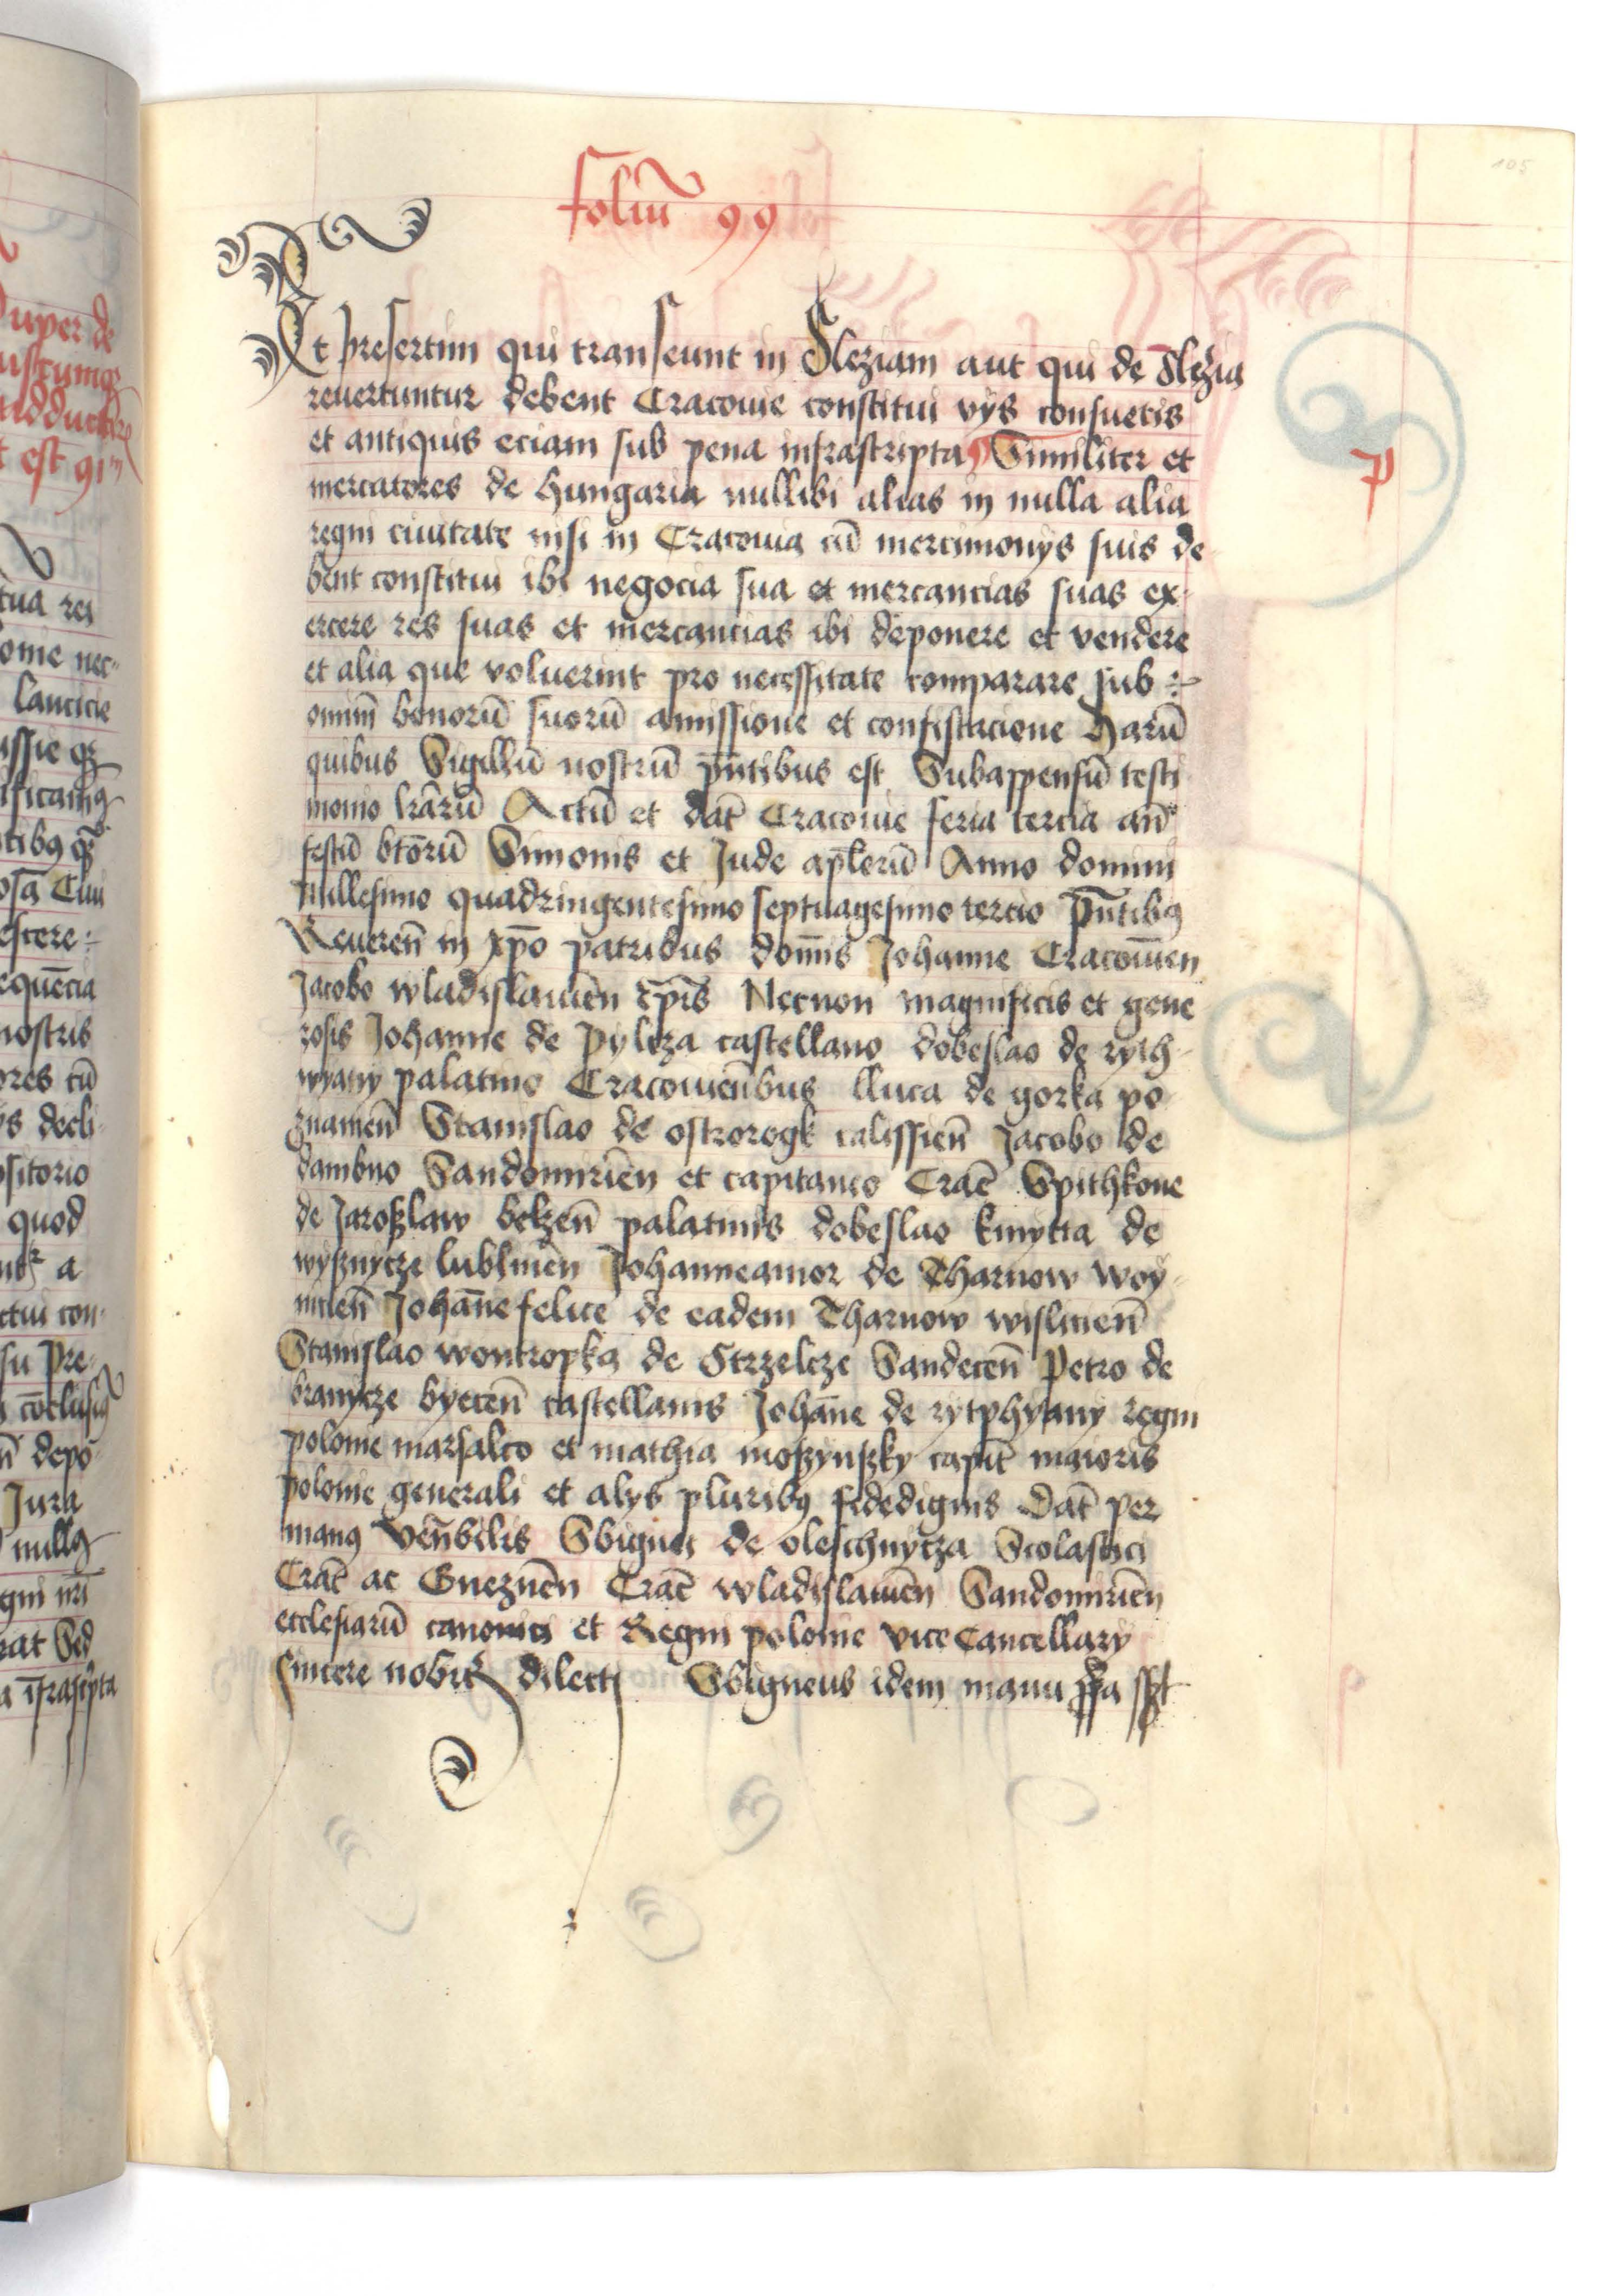 foliū 99
105
Et presertim qui transeunt in Sleziam aut qui de Slezia
reuertuntur debent Cracouie constitui vys consuetis
et antiquis eciam sub pena infrascripta Similiter et
mercatores de hungaria nullibi alias in nulla alia
regni ciuitate nisi in Cracouia cū mercimonys suis de
bent constitui ibi negocia sua et mercancias suas ex-
ercere res suas et mercancias ibi deponere et vendere
et alia que voluerint pro necessitate comparare sub
omnī bonorū suorū amissione et confiscacione Harū
quibus Sigillū nostrū pn̄tibus est Subappensū testi
monio lr̄arū Actū et dat̄ Cracouie feria tercia an̄
festū bt̄orū Simonis et Jude apl̄orū Anno domini
Millesimo quadringentesimo septuagesimo tercio pn̄tibꝰ
Reueren̄ in xp̄o patribus domīs Johanne Cracouien̄
Jacobo wladislauien̄ ep̄is Necnon magnificis et gene
rosis Johanne de pylcza castellano dobeslao de ryth-
wyany palatino Cracouien̄bus lluca de gorka po
znanien̄ Stanislao de ostrorogk calissien̄ Jacobo de
dambno Sandomirien̄ et capitaneo Crac̄ Spithkone
de Jaroßlaw belzen̄ palatinis dobeslao kmytta de
wyßnycze lublinen̄ Johanneamor de Tharnow woy-
nicien̄ Johan̄e felice de eadem Tharnow wislicien̄
Stanislao wontropka de Strzelcze Sandecen̄ Petro de
branycze byecen̄ castellanis Johan̄e de rytphyany regni
polonie marsalco et mathia moßynßky capit̄ maioris
polonie generali et alys pluribꝰ fidedignis Dat̄ per
manꝰ ven̄bilis Sbignei de oleschnycza Scolastici
Crac̄ ac Gneznen̄ Crac̄ wladislauien̄ Sandomirien̄
ecclesiarū canonici et Regni polonie vice Cancellary
sincere nobis dilecti Sbigneus idem manu ꝓpa sspt
p